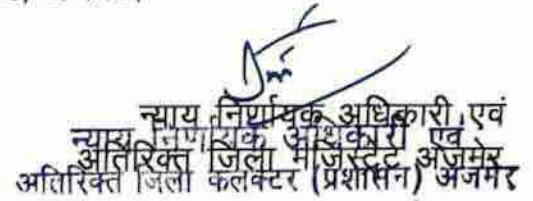 न्याय निर्णायक अधिकारी एवं
न्याय निर्णायक अधिकारी एवं
अतिरिक्त जिला मजिस्ट्रेट अजमेर
अतिरिक्त जिला कलक्टर (प्रशासन) अजमेर